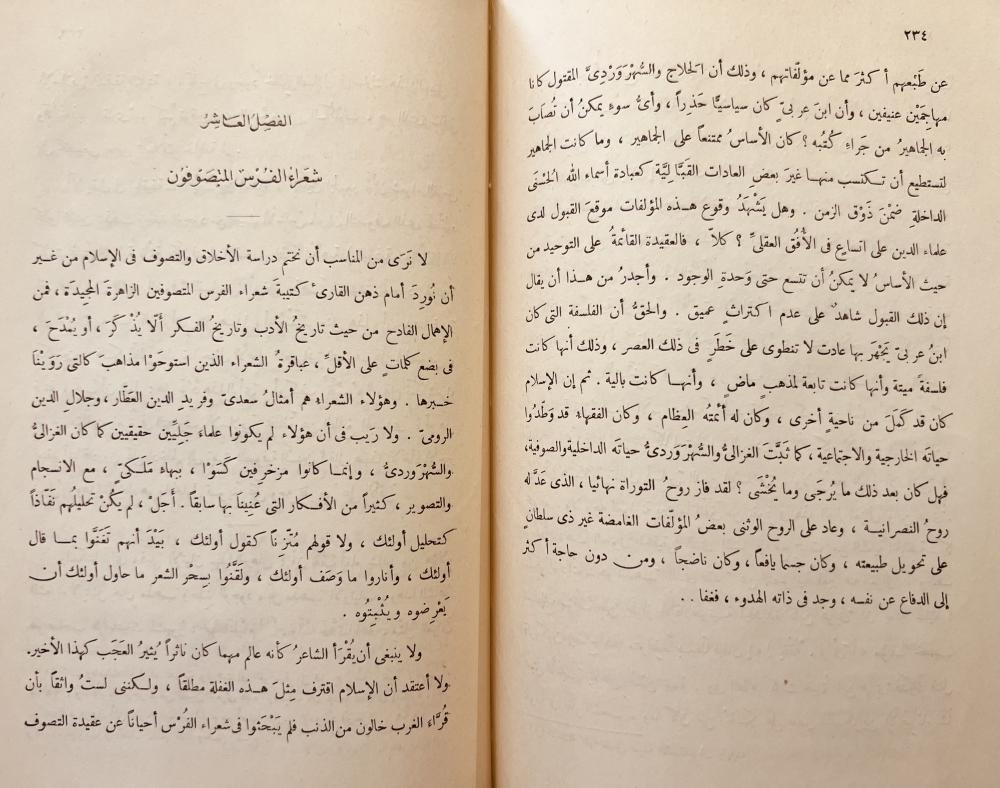 ٢٣٤
عن طَبْعهم أكثرَ مما عن مؤلّفاتهم ، وذلك أن الحلاج والسُّهْرَوَرْدِىَّ المقتول كانا
مهاجِمَيْن عنيفين ، وأن ابن عربىّ كان سياسيًّا حَذِراً ، وأىُّ سوء يمكنُ أن تُصَابَ
به الجماهيرُ من جَراءِ كُتُبه ؟ كان الأساسُ ممتنعاً على الجماهير ، وما كانت الجماهير
لتستطيع أن تكتسب منها غيرَ بعضِ العادات القَبَّالِيَّة كعبادة أسماء الله الحُسْنَى
الداخلةِ ضمْنَ ذَوْق الزمن . وهل يَشْهَدُ وقوع هذه المؤلفات موقعَ القبول لدى
علماء الدين على اتساعٍ فى الأُفُق العقلىِّ ؟ كلاّ ، فالعقيدة القائمةُ على التوحيد من
حيث الأساسُ لا يمكنُ أن تتسع حتى وَحدةِ الوجود . وأجدرُ من هذا أن يقال
إن ذلك القبول شاهدٌ على عدم اكتراثٍ عميق . والحقُّ أن الفلسفة التى كان
ابنُ عربىّ يَجْهَر بها عادت لا تنطوى على خَطَرٍ فى ذلك العصر ، وذلك أنها كانت
فلسفةً ميتة وأنها كانت تابعة لمذهبٍ ماضٍ ، وأنها كانت بالية . ثم إن الإسلام
كان قد كَمَلَ من ناحيةٍ أخرى ، وكان له أئمتُه العِظام ، وكان الفقهاء قد وَطَّدُوا
حياتَه الخارجية والاجتماعية ، كما ثَبَّتَ الغزالىُّ والسُّهْرَوَردىُّ حياتَه الداخلية والصوفية ،
فهل كان بعد ذلك ما يُرجَى وما يُخْشَى ؟ لقد فاز روحُ التوراة نهائيا ، الذى عَدَّله
روحُ النصرانية ، وعاد على الروح الوثنى بعضُ المؤلّفات الغامضة غير ذى سلطانٍ
على تحويل طبيعته ، وكان جسما يافعاً ، وكان ناضجاً ، ومن دون حاجة أكثر
إلى الدفاع عن نفسه ، وجد فى ذاته الهدوء ، فغفا . .
الفصْل العَاشِرُ
شعَراءُ الفُرْسْ المتصَوِّفوُن
لا نَرَى من المناسب أن نختم دراسة الأخلاق والتصوف فى الإسلام من غير
أن نُورِدَ أمام ذهن القارئ كتيبةَ شعراء الفرس المتصوفين الزاهرةَ المجيدةَ ، فمن
الإهمال الفادح من حيث تاريخُ الأدب وتاريخُ الفكر ألّا يُذْكَرَ ، أو يُمْدَحَ ،
فى بضع كلماتٍ على الأقلِّ ، عباقرةُ الشعراء الذين استوحَوْا مذاهبَ كالتى رَوَيْنَا
خبرها . وهؤلاء الشعراء هم أمثالُ سعدىّ وفريدِ الدين العَطّار ، وجلالِ الدين
الرومىّ . ولا رَيب فى أن هؤلاء لم يكونوا علماءَ جَلِيِّين حقيقيين كما كان الغزالىُّ
والسُّهْرَوردىُّ ، وإنما كانوا مزخرِفين كَسَوْا ، ببهاءٍ مَلَكىّ ، مع الانسجام
والتصوير ، كثيراً من الأفكار التى عُنِينا بها سابقاً . أَجَلْ ، لم يكنْ تحليلُهم نَفّاذاً
كتحليل أولئك ، ولا قولهم مُتَّزِناً كقول أولئك ، بَيْدَ أنهم تَغَنَّوا بما قال
أولئك ، وأناروا ما وَصَف أولئك ، ولَقَّنُوا بسِحْر الشعر ما حاول أولئك أن
يَعْرِضوه ويُثْبِتُوه .
ولا ينبغى أن يُقْرَأ الشاعرُ كأنه عالم مهما كان ناثراً يُثيرُ العَجَب كهذا الأخير .
ولا أعتقد أن الإسلام اقترف مِثلَ هذه الغفلة مطلقاً ، ولكننى لستُ واثقاً بأن
قُرَّاءَ الغرب خالون من الذنب فلم يَبْحَثوا فى شعراء الفُرْس أحياناً عن عقيدة التصوف